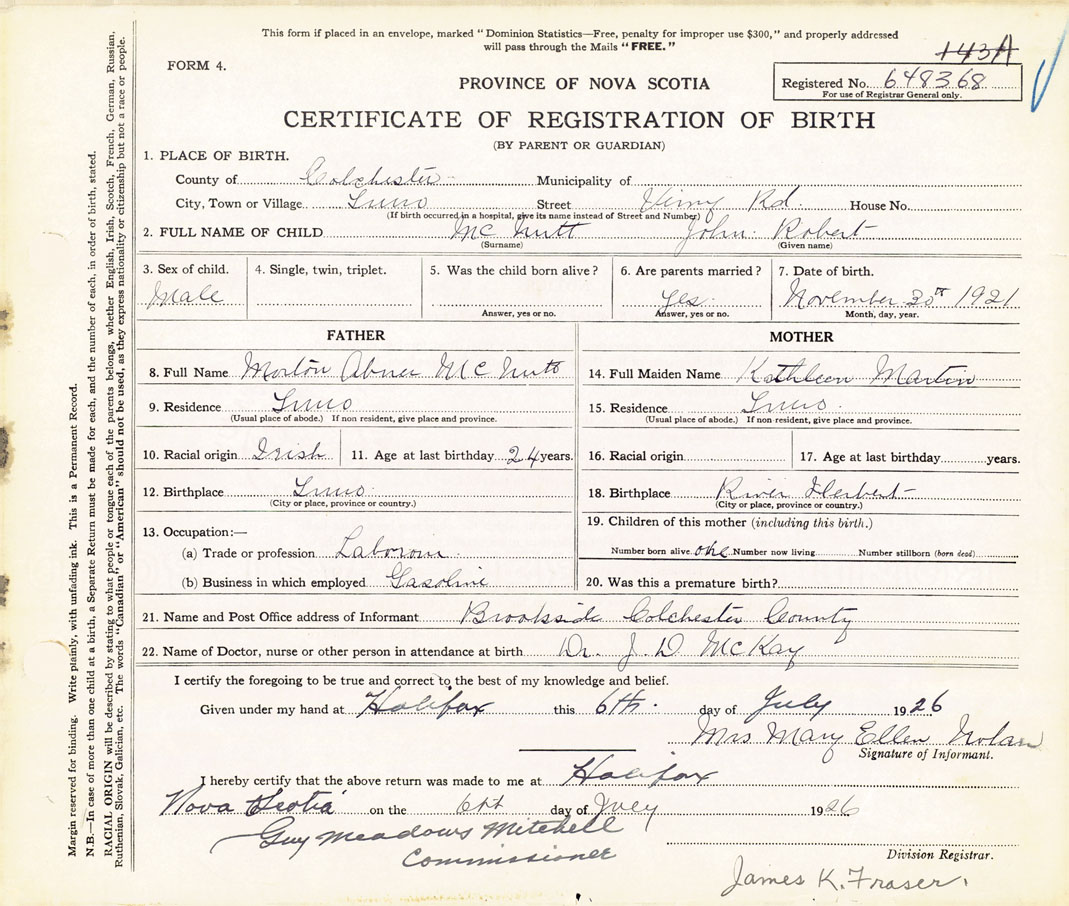 This form if placed in an envelope, marked "Dominion Statistics—Free, penalty for improper use $300," and properly addressed
will pass through the Mails "FREE."
143A
FORM 4.
PROVINCE OF NOVA SCOTIA
Registered No. 648368
For use of Registrar General only.
CERTIFICATE OF REGISTRATION OF BIRTH
(BY PARENT OR GUARDIAN)
1. PLACE OF BIRTH.
County of Colchester Municipality of
City, Town or Village Truro Street Vimy Rd. House No.
(If birth occurred in a hospital, give its name instead of Street and Number)
2. FULL NAME OF CHILD McNutt John Robert
(Surname) (Given name)
3. Sex of child. 4. Single, twin, triplet. 5. Was the child born alive? 6. Are parents married? 7. Date of birth.
Male Yes. November 30th 1921
Answer, yes or no. Answer, yes or no. Month, day, year.
FATHER MOTHER
8. Full Name Morton Abner McNutt 14. Full Maiden Name Kathleen Martin
9. Residence Truro 15. Residence Truro.
(Usual place of abode.) If non resident, give place and province. (Usual place of abode.) If non-resident, give place and province.
10. Racial origin Irish 11. Age at last birthday 24 years. 16. Racial origin 17. Age at last birthday years.
12. Birthplace Truro 18. Birthplace River Herbert
(City or place, province or country.) (City or place, province or country.)
13. Occupation:— 19. Children of this mother (including this birth.)
(a) Trade or profession Number born alive one Number now living Number stillborn (born dead)
(b) Business in which employed Gasoline 20. Was this a premature birth?
21. Name and Post Office address of Informant Brookside Colchester County
22. Name of Doctor, nurse or other person in attendance at birth Dr. J. D McKay
I certify the foregoing to be true and correct to the best of my knowledge and belief.
Given under my hand at Halifax this 6th. day of July 1926
Mrs Mary Ellen Nolan
Signature of Informant.
I hereby certify that the above return was made to me at Halifax
Nova Scotia on the 6th day of July 1926
Guy Meadows Mitchell
Commissioner
Division Registrar.
James K. Fraser.
Margin reserved for binding. Write plainly, with unfading ink. This is a Permanent Record.
N.B.—In case of more than one child at a birth, a Separate Return must be made for each, and the number of each, in order of birth, stated.
RACIAL ORIGIN will be described by stating to what people or tongue each of the parents belongs, whether English, Irish, Scotch, French, German, Russian,
Ruthenian, Slovak, Galician, etc. The words "Canadian" or "American" should not be used, as they express nationality or citizenship but not a race or people.